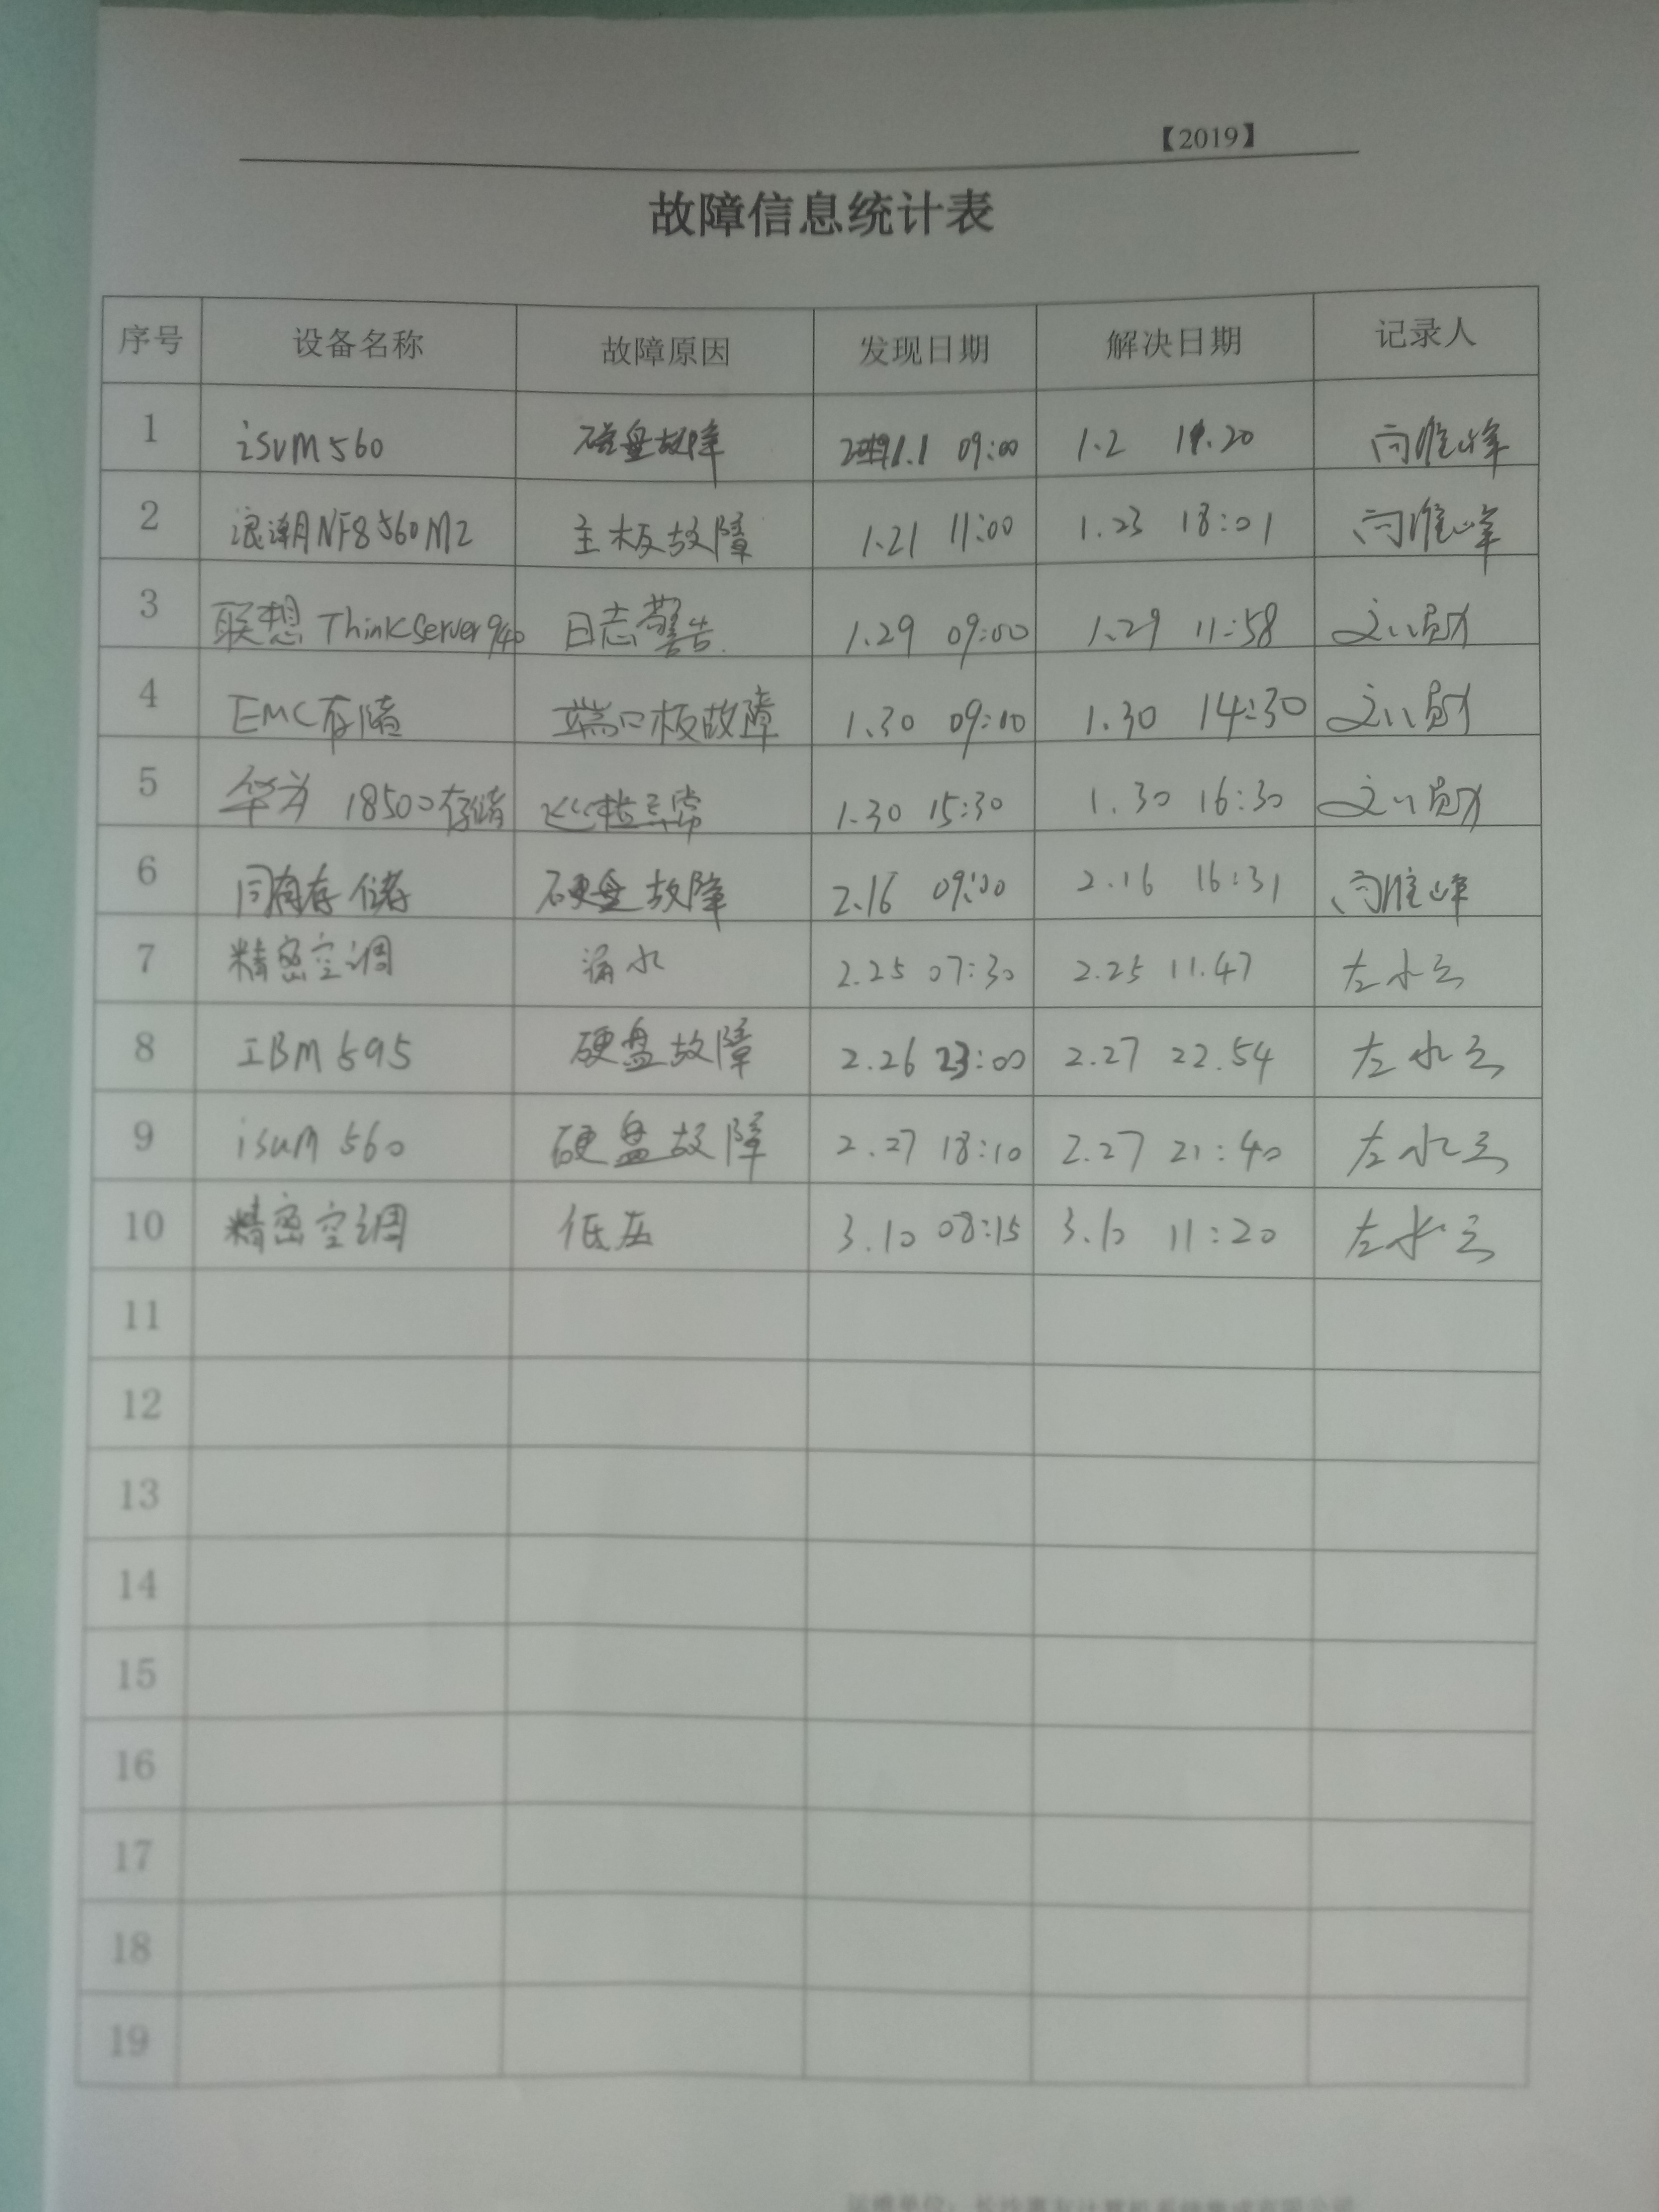 【2019】
故障信息统计表
序号 设备名称 故障原因 发现日期 解决日期 记录人
1 isum560 磁盘故障 1.1 09:00 1.2 11.20 向维峰
2 浪潮NF8560M2 主板故障 1.21 11:00 1.23 18:01 向维峰
3 联想 ThinkServer940 日志警告. 1.29 09:00 1.29 11:58
4 EMC存储 端口板故障 1.30 09:10 1.30 14:30
5 华为 18500存储 巡检异常 1.30 15:30 1.30 16:30
6 同有存储 硬盘故障 2.16 09:00 2.16 16:31 向维峰
7 精密空调 漏水 2.25 07:30 2.25 11.47 左水云
8 IBM 595 硬盘故障 2.26 23:00 2.27 22.54 左水云
9 isum 560 硬盘故障 2.27 18:10 2.27 21:40 左水云
10 精密空调 低压 3.10 08:15 3.10 11:20 左水云
11
12
13
14
15
16
17
18
19